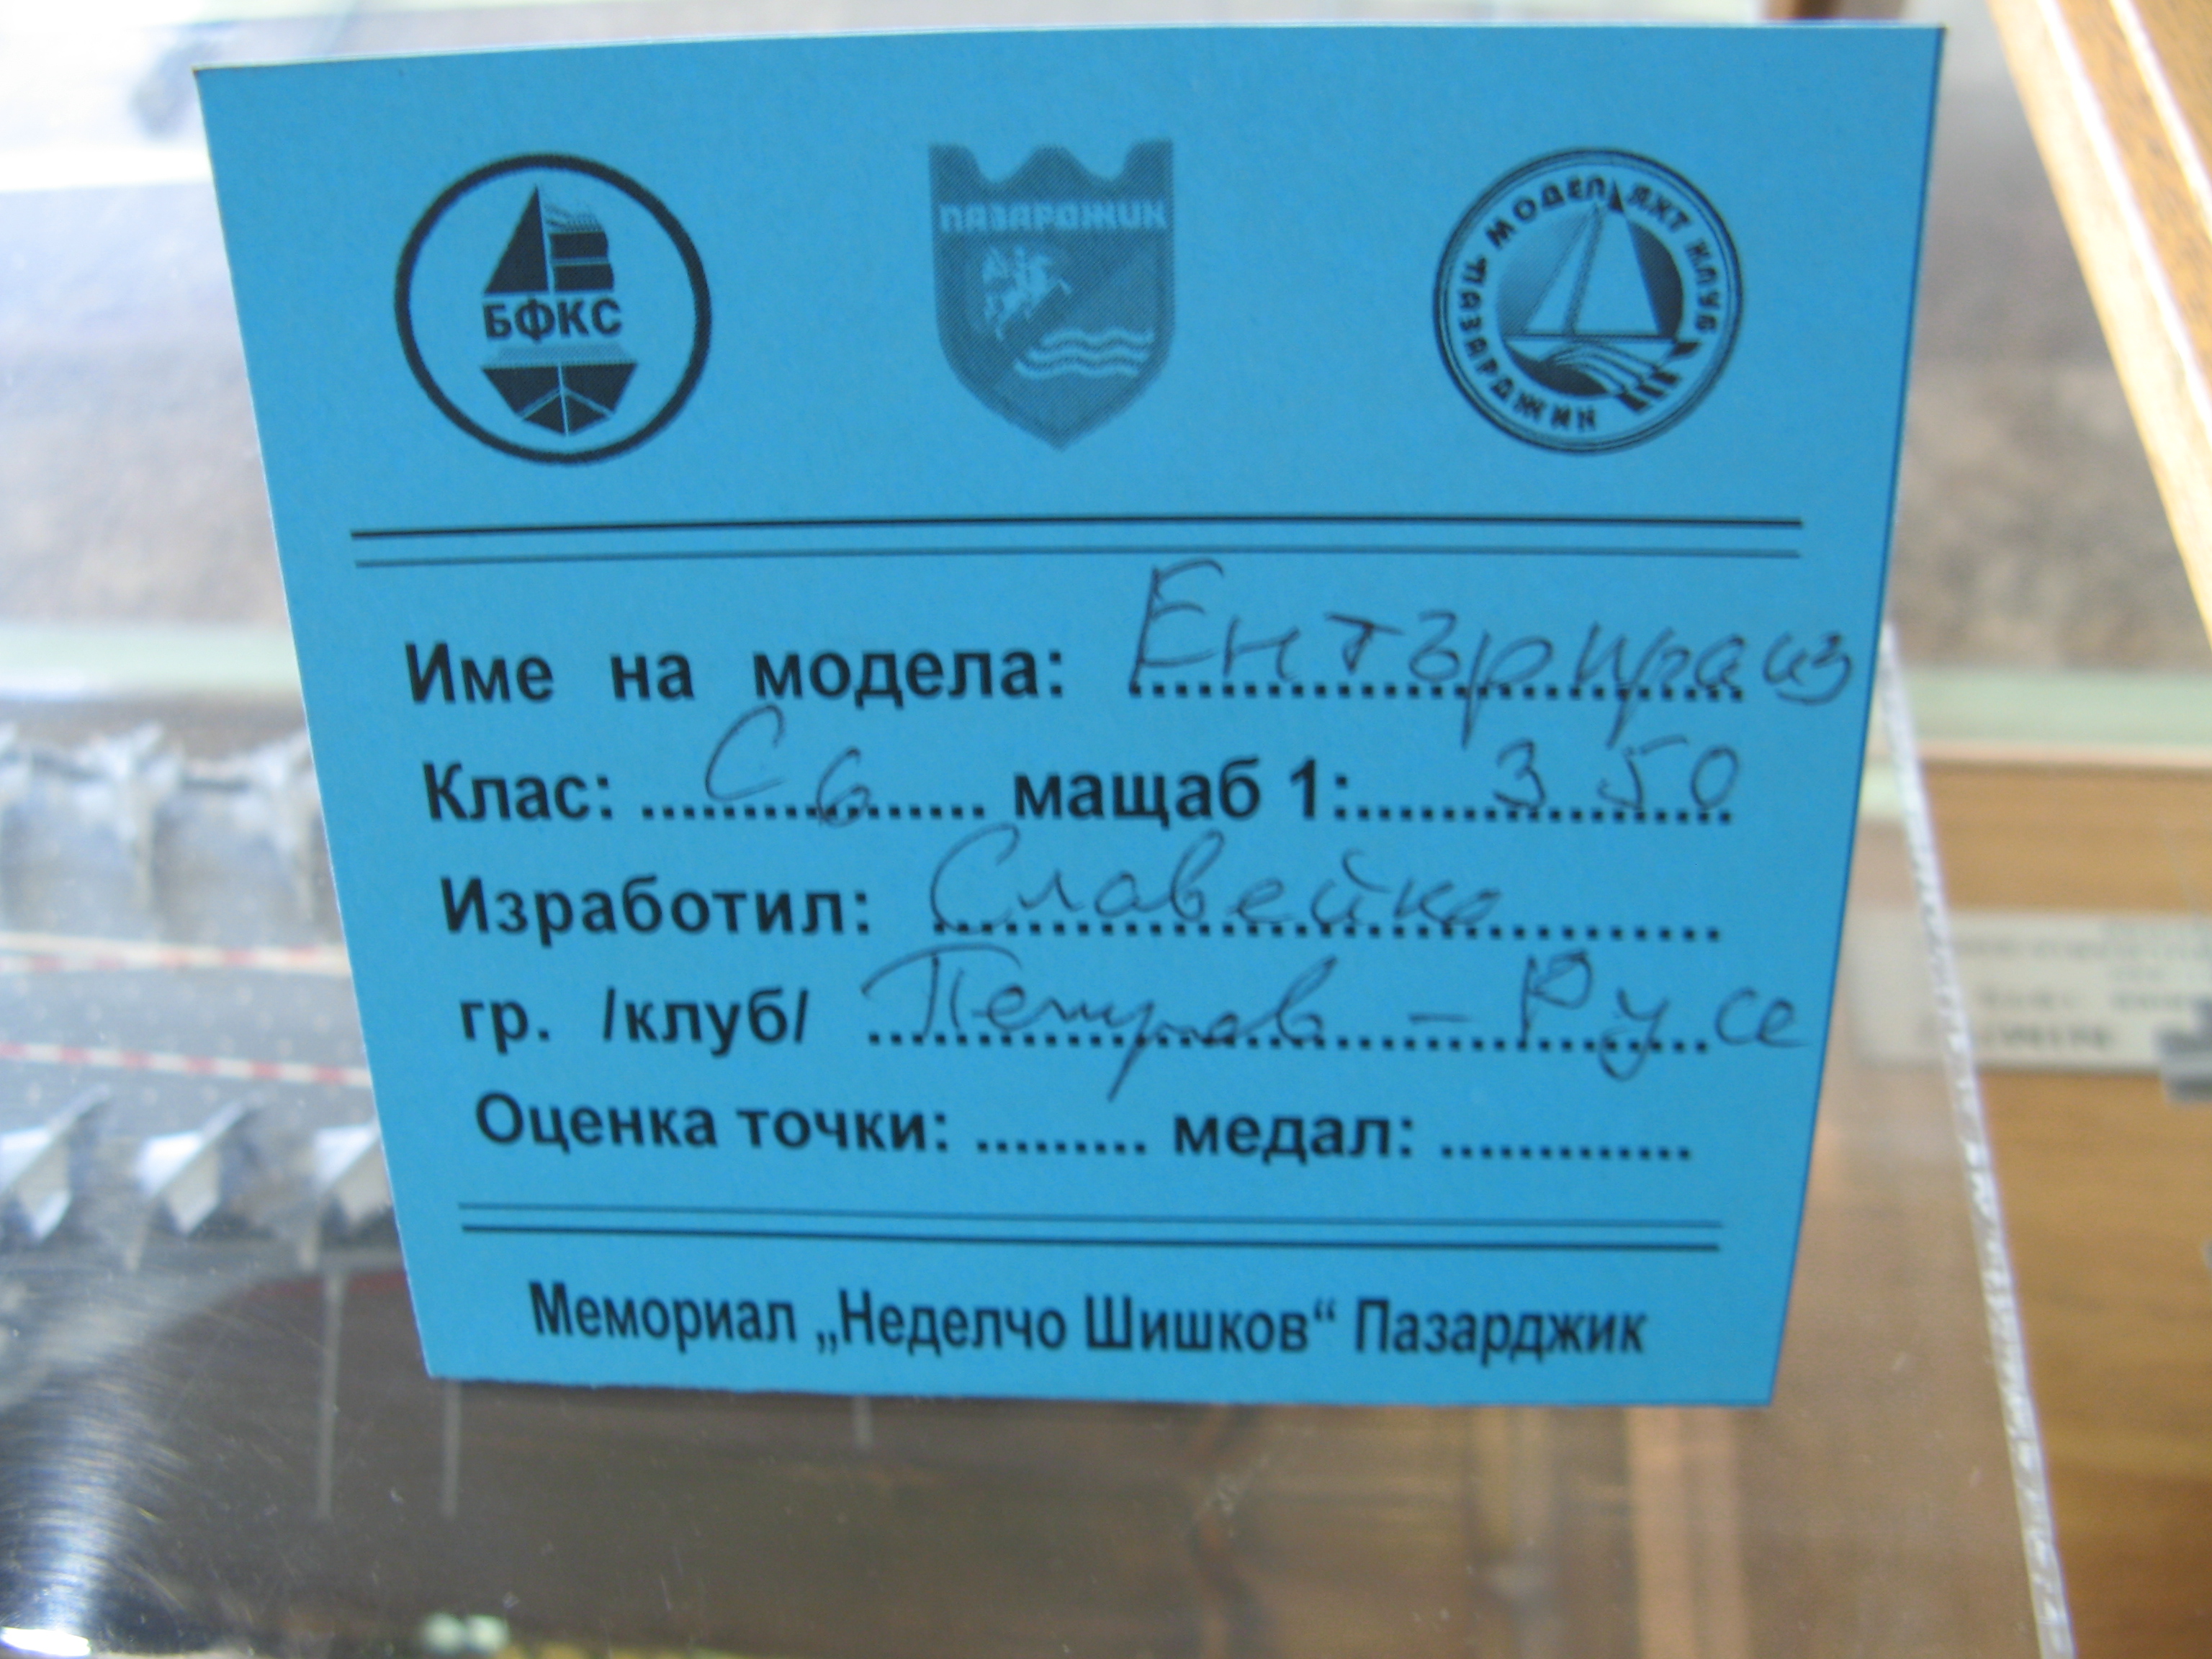 БФКС
ПАЗАРДЖИК
МОДЕЛ ЯХТ КЛУБ
ПАЗАРДЖИК
Име на модела: Ентърпрайз
Клас: С6 мащаб 1: 350
Изработил: Славейко
гр. /клуб/ Петров - Русе
Оценка точки: ......... медал: .............
Мемориал „Неделчо Шишков“ Пазарджик